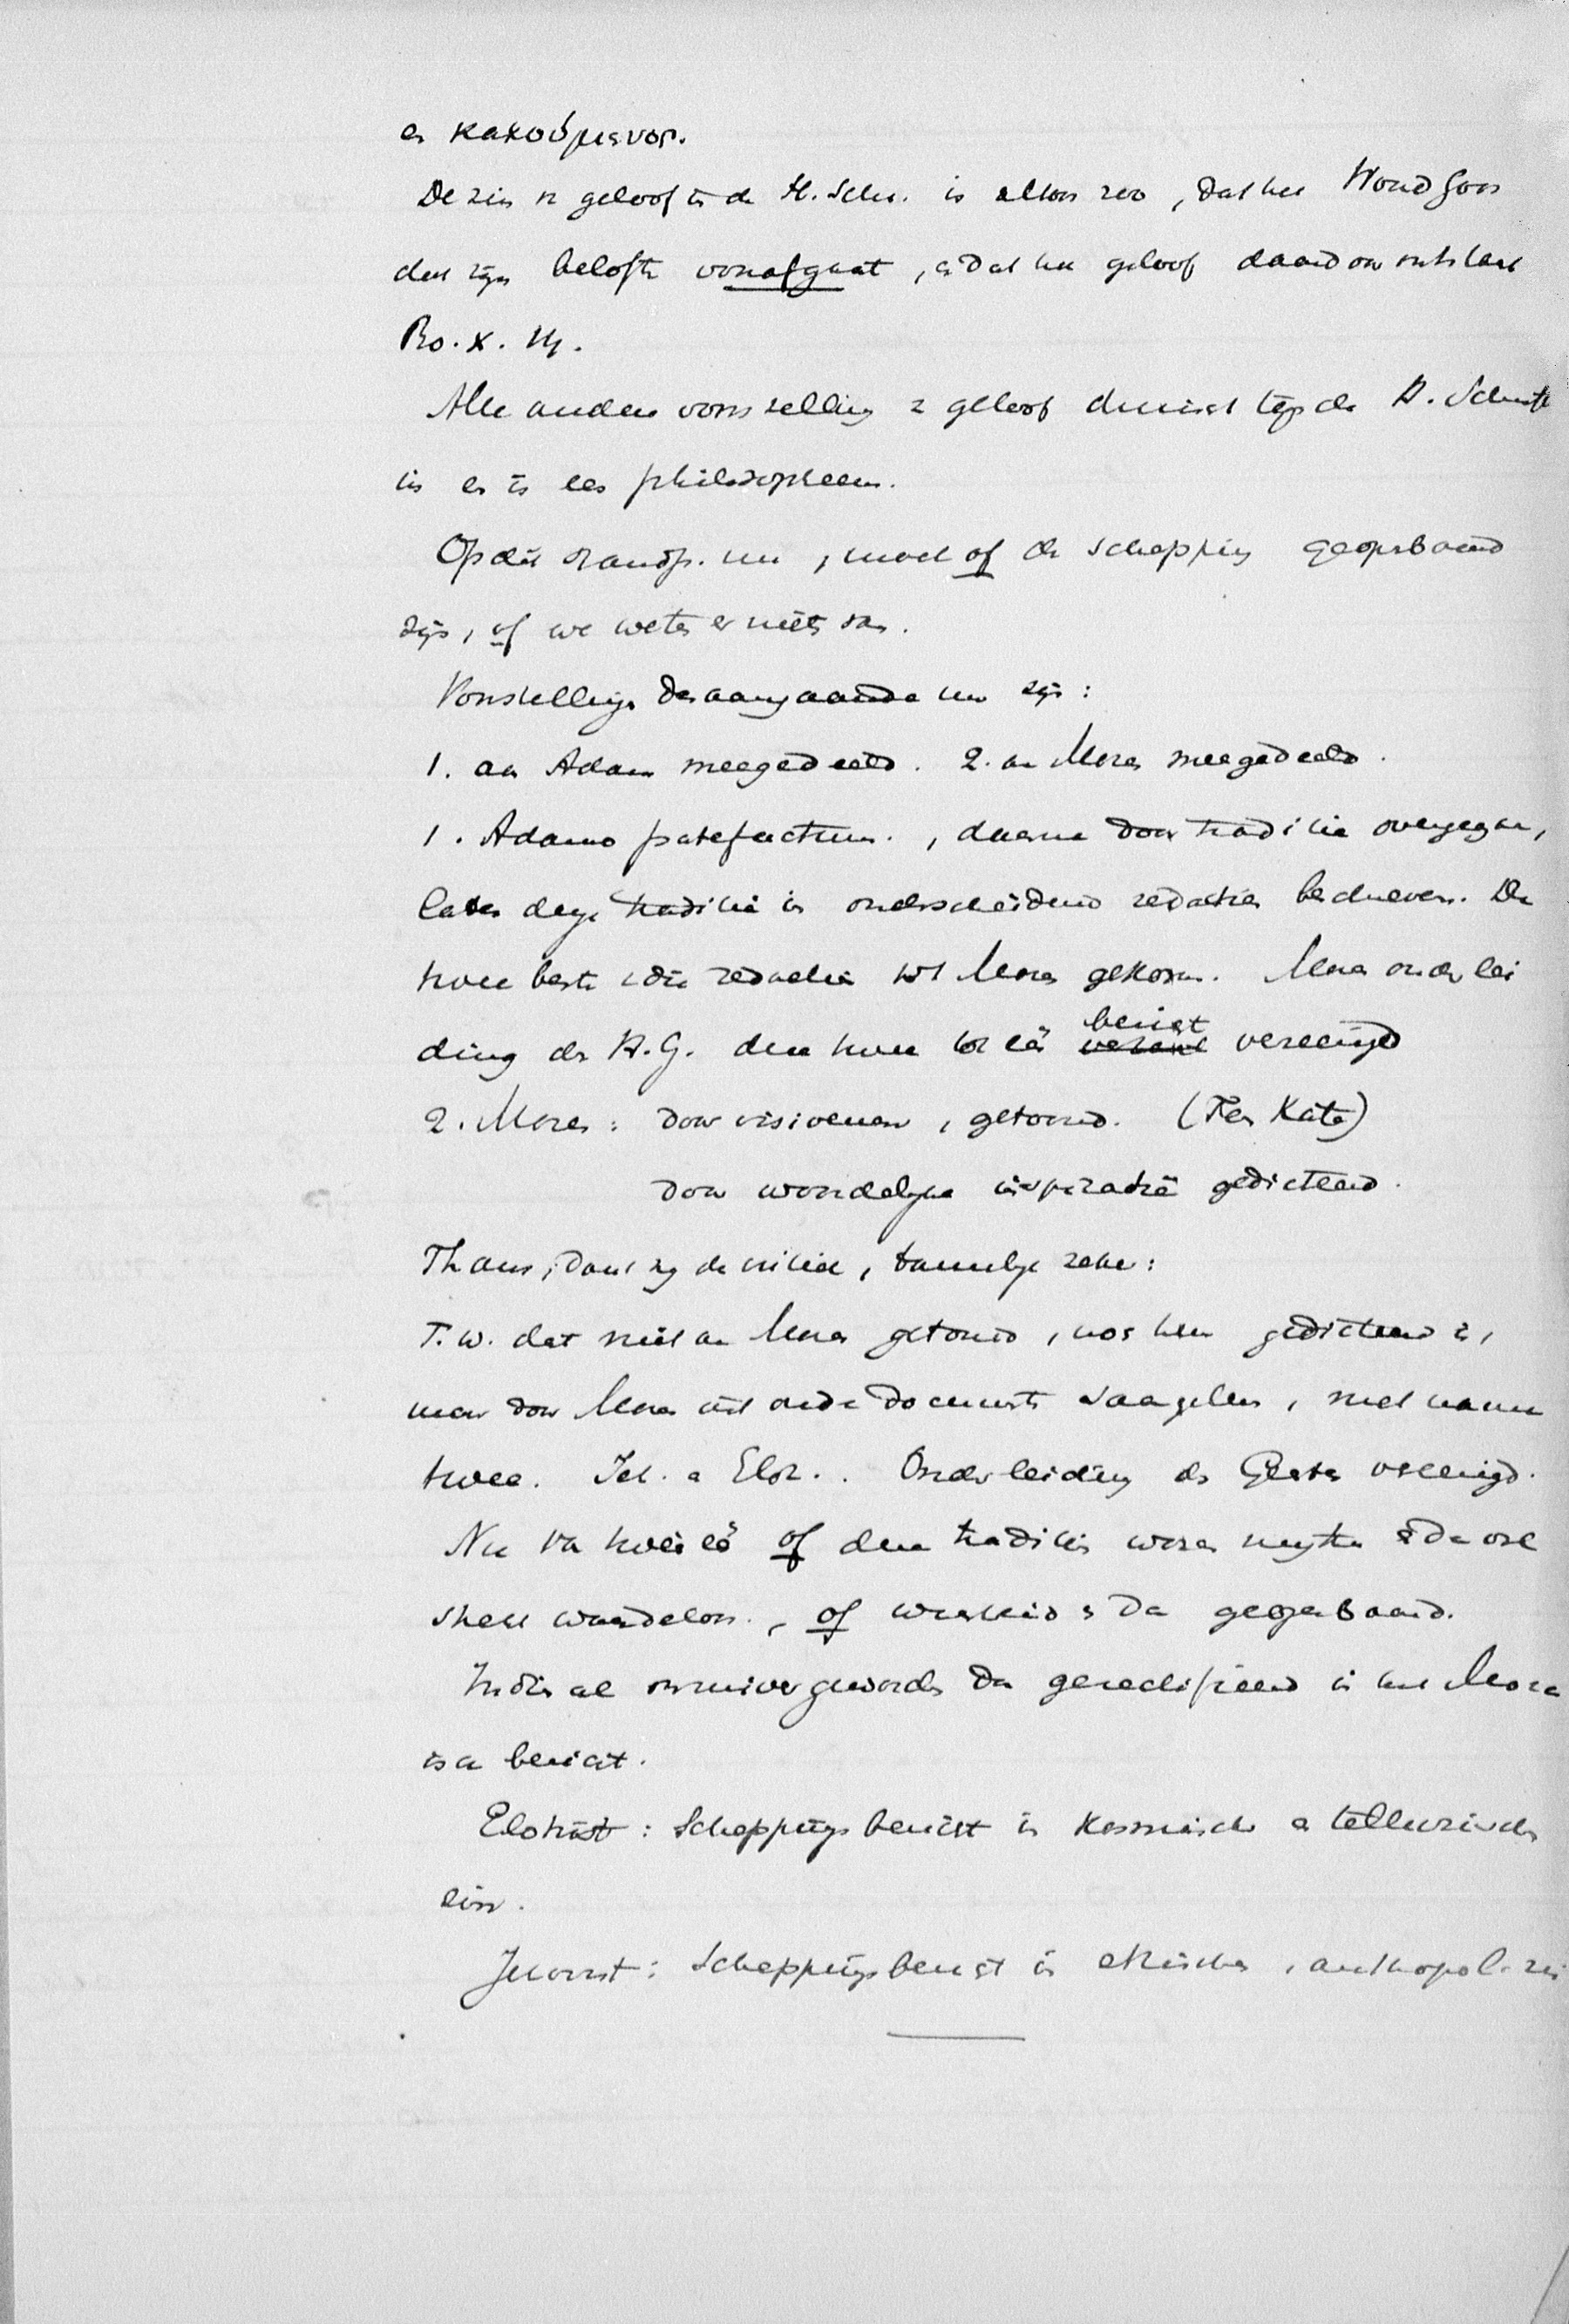 en κακούμενοι.
De zin v geloof in de H. Schr. is altoos zoo, dat het Woord Gods
den zijn belofte voorafgaat, e dat het geloof daardoor ontstaat
Ro. X. 14.
Alle andere voorstelling v geloof druischt tegen de H. Schrift
in en is een philosopheem.
Op dit standp. nu, moet of de schepping geopenbaard
zijn, of we weten er niets van.
Voorstellingen desaangaande nu zijn:
1. aan Adam meegedeeld. 2. aan Mozes meegedeeld.
1. Adamo patefactum., daarna door traditie overgegaan,
later deze traditie in onderscheidene redactien beschreven. De
twee beste dier redactien tot Mozes gekomen. Mozes onder lei
ding des H.G. deze twee tot één bericht vereenigd
2. Mozes: door visioenen, getoond. (Ten Kate)
door woordelijke inspiratie gedicteerd.
Thans, dank zij de critiek, tamelijk zeker:
T.w. dat niet aan Mozes getoond, noch hem gedicteerd is,
maar door Mozes uit oude documenten saamgelezen, met name
twee. Jeh. e Eloh.. Onder leiding des Geestes vereenigd.
Nu van tweeën één of deze traditien waren mythen e dan ook
thans waardeloos, of waarheid e dan geopenbaard.
Indien al onzuiver geworden dan gerectificeerd in het Mozas
isch bericht.
Elohist: Scheppings bericht in kosmische e tellurischen
zin.
Jehovist: Scheppingsbericht in ethischen, anthropol. zin